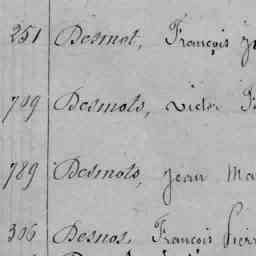 251 Desmot, François
709 Desmots, victor
789 Desmots, Jean Ma
306 Desnos, François Pierr